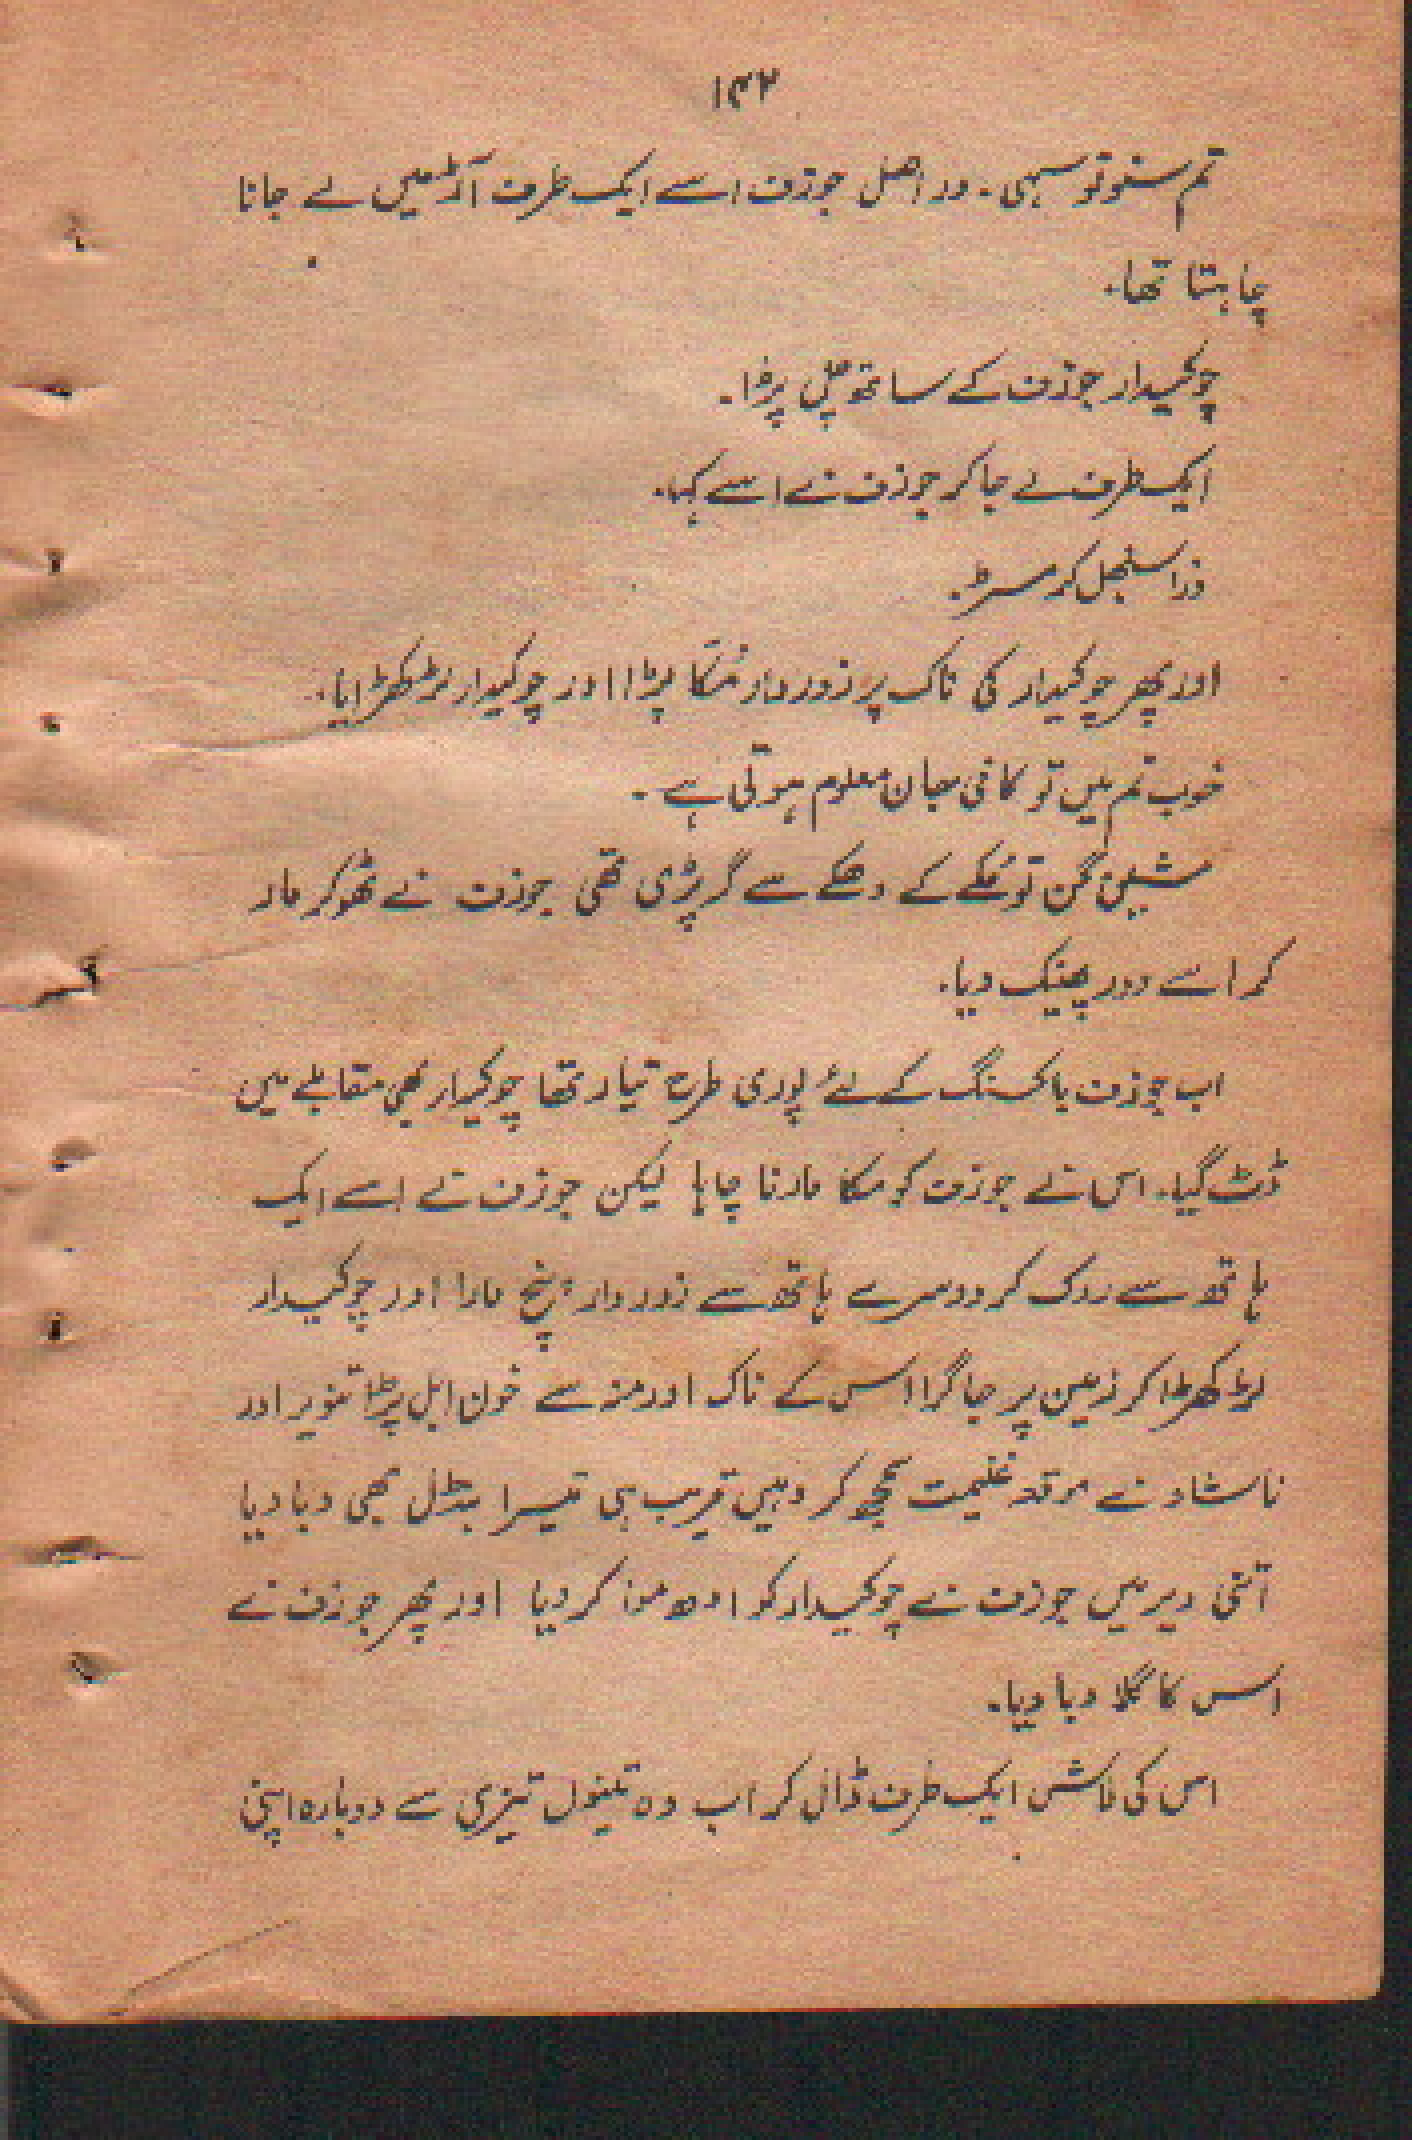 ۱۴۲
تم سنو تو سہی۔ در اصل جوزف اسے ایک طرف آڑ میں لے جانا
چاہتا تھا۔
چوکیدار جوزف کے ساتھ چل پڑا۔
ایک طرف لے جا کر جوزف نے اسے کہا۔
ذرا سنبھل کر مسٹر۔
اور پھر چوکیدار کی ناک پر زور دار مُکا پڑا اور چوکیدار لڑکھڑایا۔
خوب تم میں تو کافی جان معلوم ہوتی ہے۔
مشین گن تو مُکے کے دھکے سے گر پڑی تھی جوزف نے ٹھوکر مار
کر اسے دور پھینک دیا۔
اب جوزف باکسنگ کے لئے پوری طرح تیار تھا چوکیدار بھی مقابلے میں
ڈٹ گیا۔ اس نے جوزف کو مکا مارنا چاہا لیکن جوزف نے اسے ایک
ہاتھ سے روک کر دوسرے ہاتھ سے زور دار پنچ مارا اور چوکیدار
لڑکھڑا کر زمین پر جا گرا اس کے ناک اور منہ سے خون ابل پڑا تنویر اور
ناشاد نے موقعہ غنیمت سمجھ کر وہیں قریب ہی تیسرا بنڈل بھی دبا دیا
اتنی دیر میں جوزف نے چوکیدار کو ادھ موا کر دیا اور پھر جوزف نے
اس کا گلا دبا دیا۔
اس کی لاش ایک طرف ڈال کر اب وہ تینوں تیزی سے دوبارہ اپنی